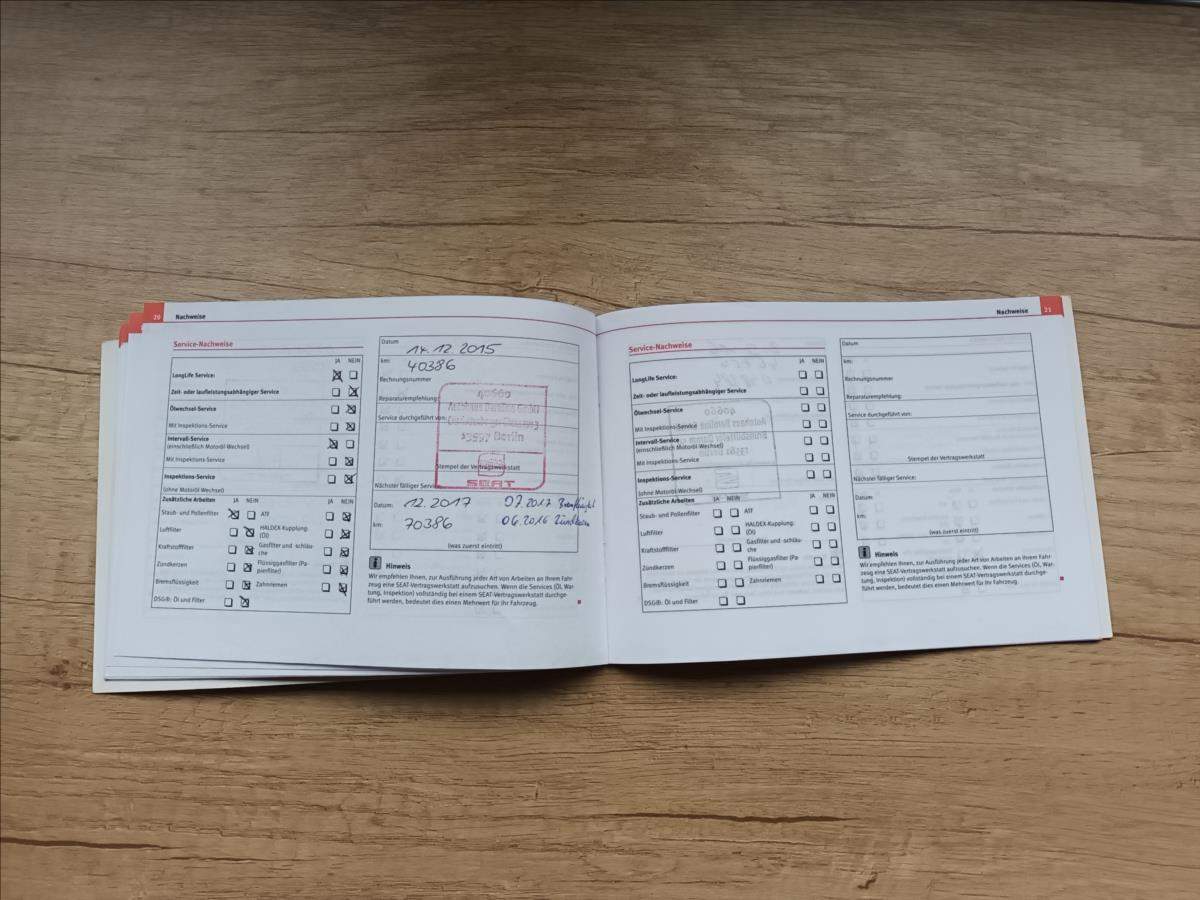 20 Nachweise
Service-Nachweise
JA NEIN
LongLife Service:
Zeit- oder laufleistungsabhängiger Service
Ölwechsel-Service
Mit Inspektions-Service
Intervall-Service
(einschließlich Motoröl-Wechsel)
Mit Inspektions-Service
Inspektions-Service
(ohne Motoröl-Wechsel)
Zusätzliche Arbeiten JA NEIN JA NEIN
Staub- und Pollenfilter ATF
Luftfilter HALDEX-Kupplung:
(Öl)
Kraftstofffilter Gasfilter und -schläu-
che
Zündkerzen Flüssiggasfilter (Pa-
pierfilter)
Bremsflüssigkeit Zahnriemen
DSG®: Öl und Filter
Datum
14.12.2015
km:
40386
Rechnungsnummer
Reparaturempfehlung:
Service durchgeführt von:
40660
13597 Berlin
Stempel der Vertragswerkstatt
SEAT
Nächster fälliger Service:
Datum: 12.2017 07.2017
km: 70386 06.2016
(was zuerst eintritt)
i Hinweis
Wir empfehlen Ihnen, zur Ausführung jeder Art von Arbeiten an Ihrem Fahr-
zeug eine SEAT-Vertragswerkstatt aufzusuchen. Wenn die Services (Öl, War-
tung, Inspektion) vollständig bei einem SEAT-Vertragswerkstatt durchge-
führt werden, bedeutet dies einen Mehrwert für Ihr Fahrzeug.
Nachweise 21
Service-Nachweise
JA NEIN
LongLife Service:
Zeit- oder laufleistungsabhängiger Service
Ölwechsel-Service
Mit Inspektions-Service
Intervall-Service
(einschließlich Motoröl-Wechsel)
Mit Inspektions-Service
Inspektions-Service
(ohne Motoröl-Wechsel)
Zusätzliche Arbeiten JA NEIN JA NEIN
Staub- und Pollenfilter ATF
Luftfilter HALDEX-Kupplung:
(Öl)
Kraftstofffilter Gasfilter und -schläu-
che
Zündkerzen Flüssiggasfilter (Pa-
pierfilter)
Bremsflüssigkeit Zahnriemen
DSG®: Öl und Filter
Datum
km:
Rechnungsnummer
Reparaturempfehlung:
Service durchgeführt von:
Stempel der Vertragswerkstatt
Nächster fälliger Service:
Datum:
km:
(was zuerst eintritt)
i Hinweis
Wir empfehlen Ihnen, zur Ausführung jeder Art von Arbeiten an Ihrem Fahr-
zeug eine SEAT-Vertragswerkstatt aufzusuchen. Wenn die Services (Öl, War-
tung, Inspektion) vollständig bei einem SEAT-Vertragswerkstatt durchge-
führt werden, bedeutet dies einen Mehrwert für Ihr Fahrzeug.